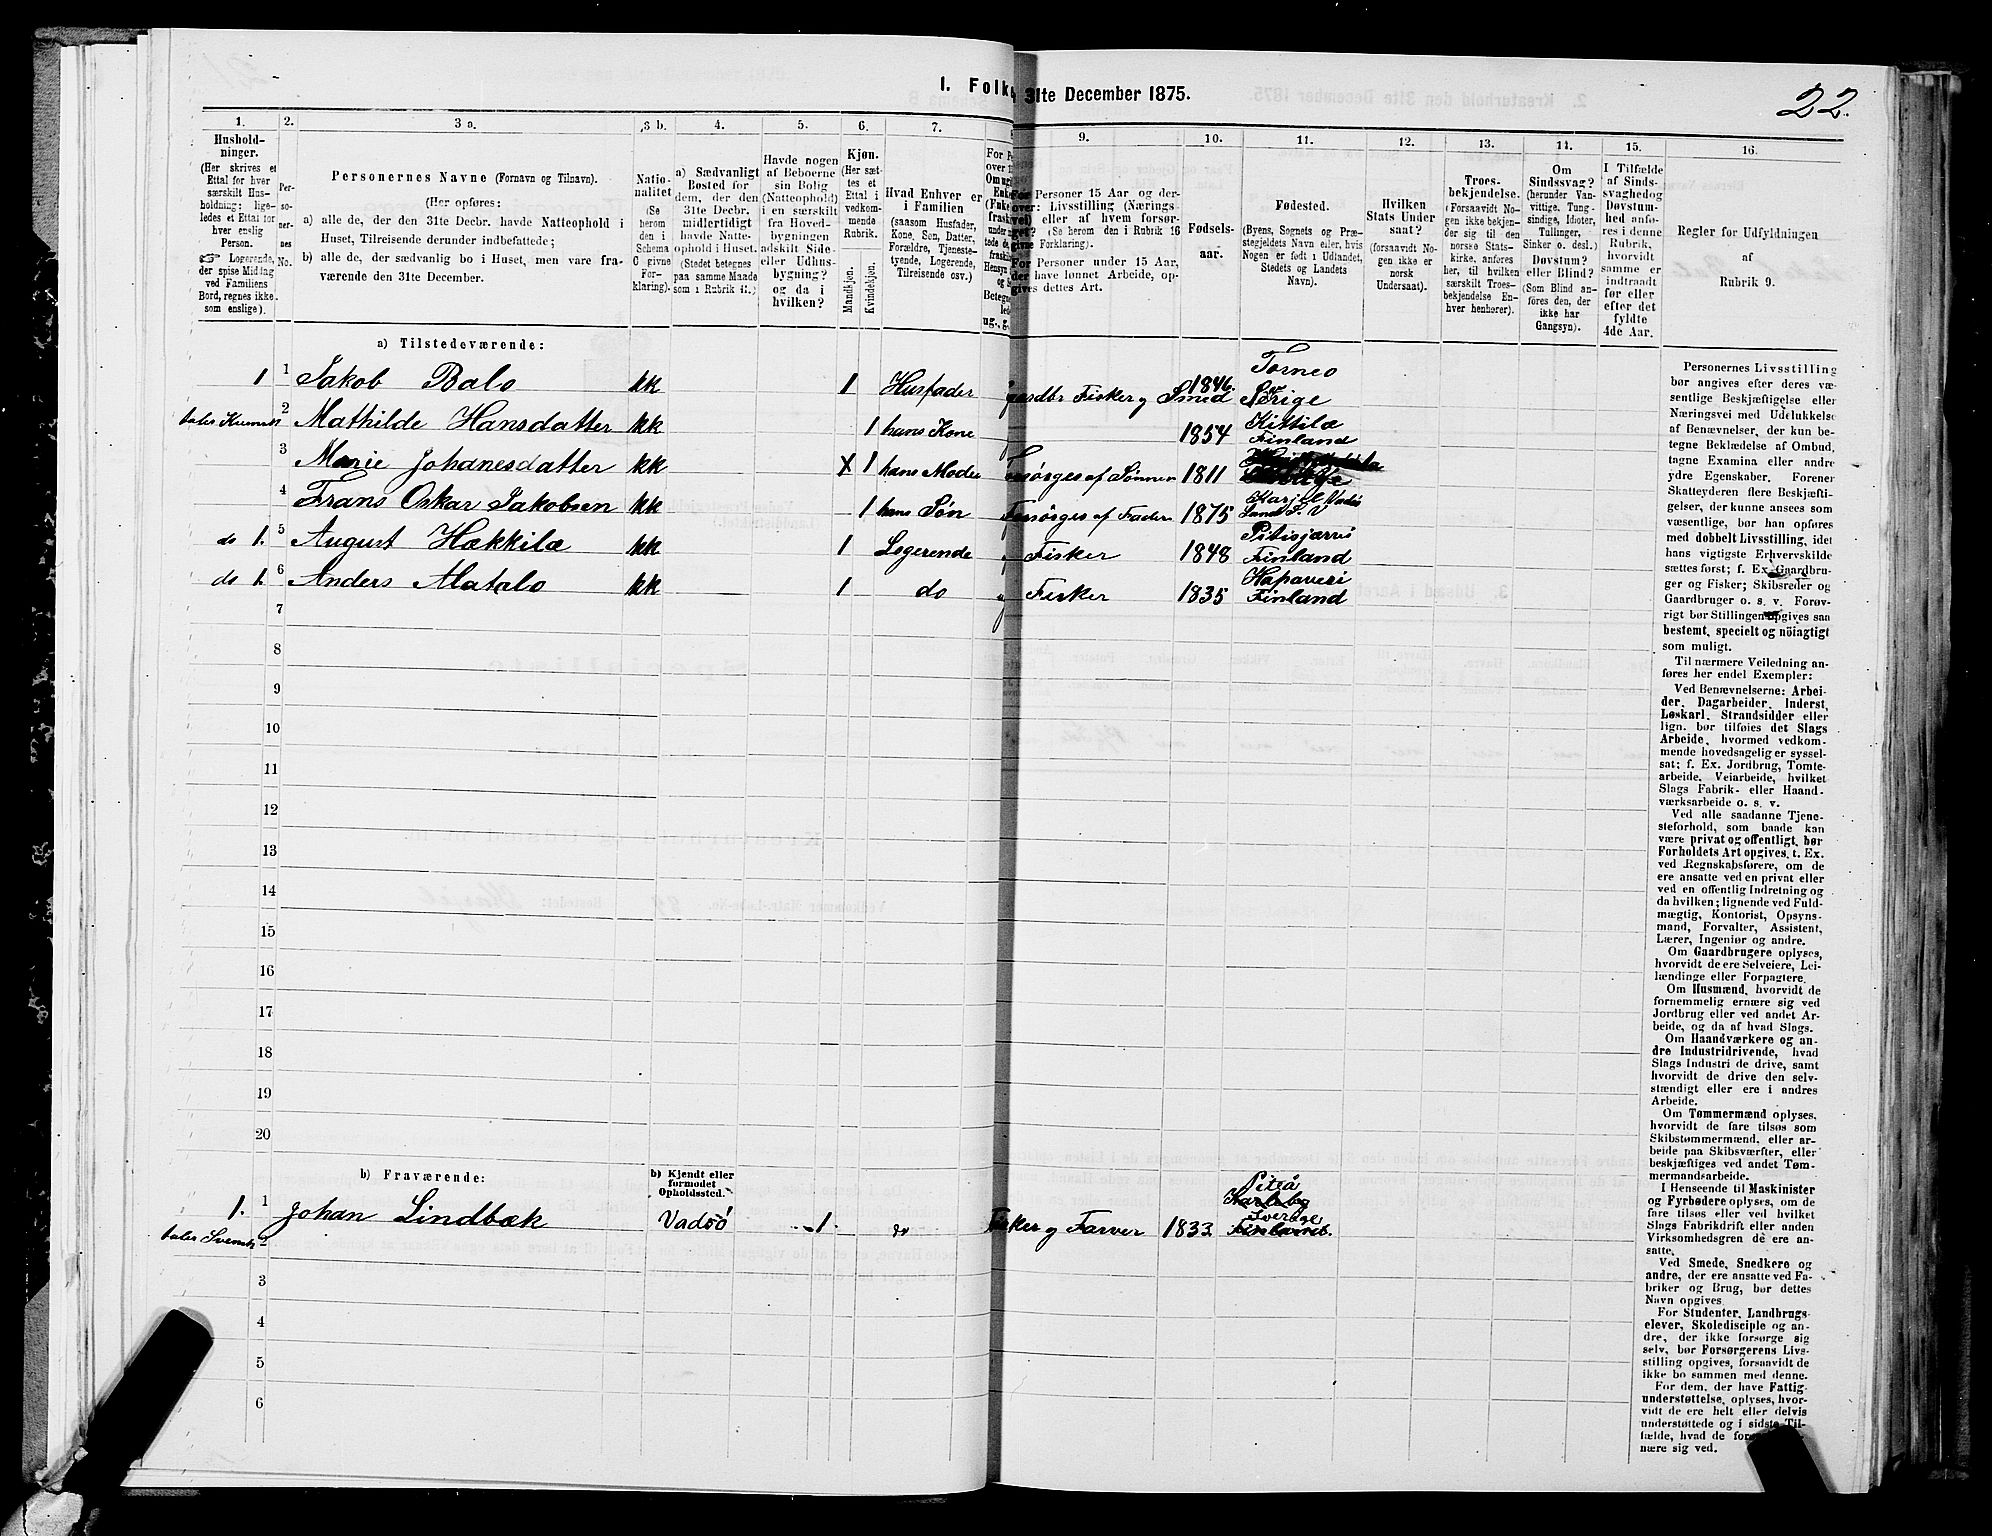 22.
I. Folk 31te December 1875.
1. 2. 3 a. 3 b. 4. 5. 6. 7. 9. 10. 11. 12. 13. 14. 15. 16.
Hushold-
ninger.
(Her skrives et
Ettal for hver
særskilt Hus-
holdning; lige-
ledes et Ettal for
hver enslig
Person.
☞ Logerende,
der spise Middag
ved Familiens
Bord, regnes ikke
som enslige).
Per-
so-
ner-
nes
No.
Personernes Navne (Fornavn og Tilnavn).
(Her opføres:
a) alle de, der den 31te Decbr. havde Natteophold i
Huset, Tilreisende derunder indbefattede;
b) alle de, der sædvanlig bo i Huset, men vare fra-
værende den 31te December.
Natio-
nalitet
(Se
herom
den i
Schema
C givne
For-
klaring).
a) Sædvanligt
Bosted for
dem, der den
31te Decbr.
midlertidigt
havde Natte-
ophold i Huset.
(Stedet betegnes
paa samme Maade
som i Rubrik 11.)
Havde nogen
af Beboerne
sin Bolig
(Natteophold)
i en særskilt
fra Hoved-
bygningen
adskilt Side-
eller Udhus-
bygning?
og da i
hvilken?
Kjøn.
(Her sæt-
tes et
Ettal i
vedkom-
mende
Rubrik.
Mandkjøn.
Kvindekjøn.
Hvad Enhver er
i Familien
(saasom Husfader,
Kone, Søn, Datter,
Forældre, Tjeneste-
tyende, Logerende,
Tilreisende osv.)
Personer 15 Aar og der-
over: Livsstilling (Nærings-
vei) eller af hvem forsør-
get? (Se herom den i Rubrik 16
givne Forklaring).
For Personer under 15 Aar,
der have lønnet Arbeide, op-
gives dettes Art.
Fødsels-
aar.
Fødested.
(Byens, Sognets og Præ-
stegjeldets Navn eller, hvis
Nogen er født i Udlandet,
Stedets og Landets
Navn).
Hvilken
Stats Under
saat?
(forsaavidt No-
gen ikke er
norsk
Undersaat).
Troes-
bekjendelse.
(Forsaavidt No-
gen ikke bekjen-
der sig til den
norske Stats-
kirke, anføres
her, til hvilken
særskilt Troes-
bekjendelse En-
hver henhører).
Om
Sindssvag?
(herunder Van-
vittige, Tung-
sindige, Idioter,
Tullinger,
Sinker o. desl.)
Døvstum?
eller Blind?
(Som Blind an-
føres den, der
ikke har
Gangsyn).
I Tilfælde
af Sinds-
svaghed og
Døvstum-
hed anfø-
res i denne
Rubrik,
hvorvidt
samme er
indtraadt
før eller
efter det
fyldte
4de Aar.
Regler for Udfyldningen
af
Rubrik 9.
a) Tilstedeværende:
1 1 Jakob Balo kk 1 Husfader Fisker og Smed 1846. Torneo Sverige
taler Kvensk 2 Mathilde Hansdatter kk 1 hans Kone 1854 Kittilæ Finland
3 Marie Johanesdatter kk 1 hans Moder Forsørges af Sønnen 1811
4 Frans Oskar Jakobsen kk 1 hans Søn Forsørges af Fader 1875 Karjel Vadsø Lands S. V
do 1. 5 August Hækkilæ kk 1 Logerende Fisker 1848 Pitisjærvi Finland
do 1. 6 Anders Matalo kk 1 do Fisker 1835 Hapavesi Finland
7
8
9
10
11
12
13
14
15
16
17
18
19
20
b) Fraværende:
b) Kjendt eller
formodet
Opholdssted.
1. 1 Johan Lindbæk Vadsö 1 do Fisker og Farver 1833 Piteå Sverige
taler Svensk 2
3
4
5
6
Personernes Livsstilling
bør angives efter deres væ-
sentlige Beskjæftigelse eller
Næringsvei med Udelukkelse
af Benævnelser, der kun be-
tegne Beklædelse af Ombud,
tagne Examina eller andre
ydre Egenskaber. Forener
Skatteyderen flere Beskjæfti-
gelser, der kunne ansees som
væsentlige, bør han opføres
med dobbelt Livsstilling, idet
hans vigtigste Erhvervskilde
sættes først; f. Ex. Gaardbru-
ger og Fisker; Skibsreder og
Gaardbruger o. s. v. Forøv-
rigt bør Stillingen opgives saa
bestemt, specielt og nöiagtigt
som muligt.
Til nærmere Veiledning an-
føres her endel Exempler:
Ved Benævnelserne: Arbei-
der, Dagarbeider, Inderst,
Løskarl, Strandsidder eller
lign. bør tilføies det Slags
Arbeide, hvormed vedkom-
mende hovedsagelig er syssel-
sat; f. Ex. Jordbrug, Tomte-
arbeide, Veiarbeide, hvilket
Slags Fabrik- eller Haand-
værksarbeide o. s. v.
Ved alle saadanne Tjene-
steforhold, som baade kan
være privat og offentligt, bør
Forholdets Art opgives, t. Ex.
ved Regnskabsførere, om de
ere ansatte ved en privat eller
ved en offentlig Indretning og
da hvilken; lignende ved Fuld-
mægtig, Kontorist, Opsyns-
mand, Forvalter, Assistent,
Lærer, Ingeniør og andre.
Om Gaardbrugere oplyses,
hvorvidt de ere Selveiere, Lei-
lændinge eller Forpagtere.
Om Husmænd, hvorvidt de
fornemmelig ernære sig ved
Jordbrug eller ved andet Ar-
beide, og da af hvad Slags.
Om Haandværkere og an-
dre Industridrivende, hvad
Slags Industri de drive, samt
hvorvidt de drive den selv-
stændigt eller ere i andres
Arbeide.
Om Tømmermænd oplyses,
hvorvidt de fare tilsøs som
Skibstømmermænd, eller ar-
beide paa Skibsværfter, eller
beskjæftiges ved andet Tøm-
mermandsarbeide.
I Henseende til Maskinister
og Fyrbødere oplyses, om de
fare tilsøs eller ved hvilket
Slags Fabrikdrift eller anden
Virksomhedsgren de ere an-
satte.
Ved Smede, Snedkere og
andre, der ere ansatte ved Fa-
briker og Brug, bør dettes
Navn opgives.
For Studenter, Landbrugs-
elever, Skoledisciple og an-
dre, der ikke forsørge sig
selv, bør Forsørgerens Livs-
stilling opgives, forsaavidt de
ikke bo sammen med denne.
For dem, der have Fattig-
understøttelse, oplyses, hvor-
vidt de ere helt eller delvis
understøttede og i sidste Til-
fælde, hvad de
nære sig ved.